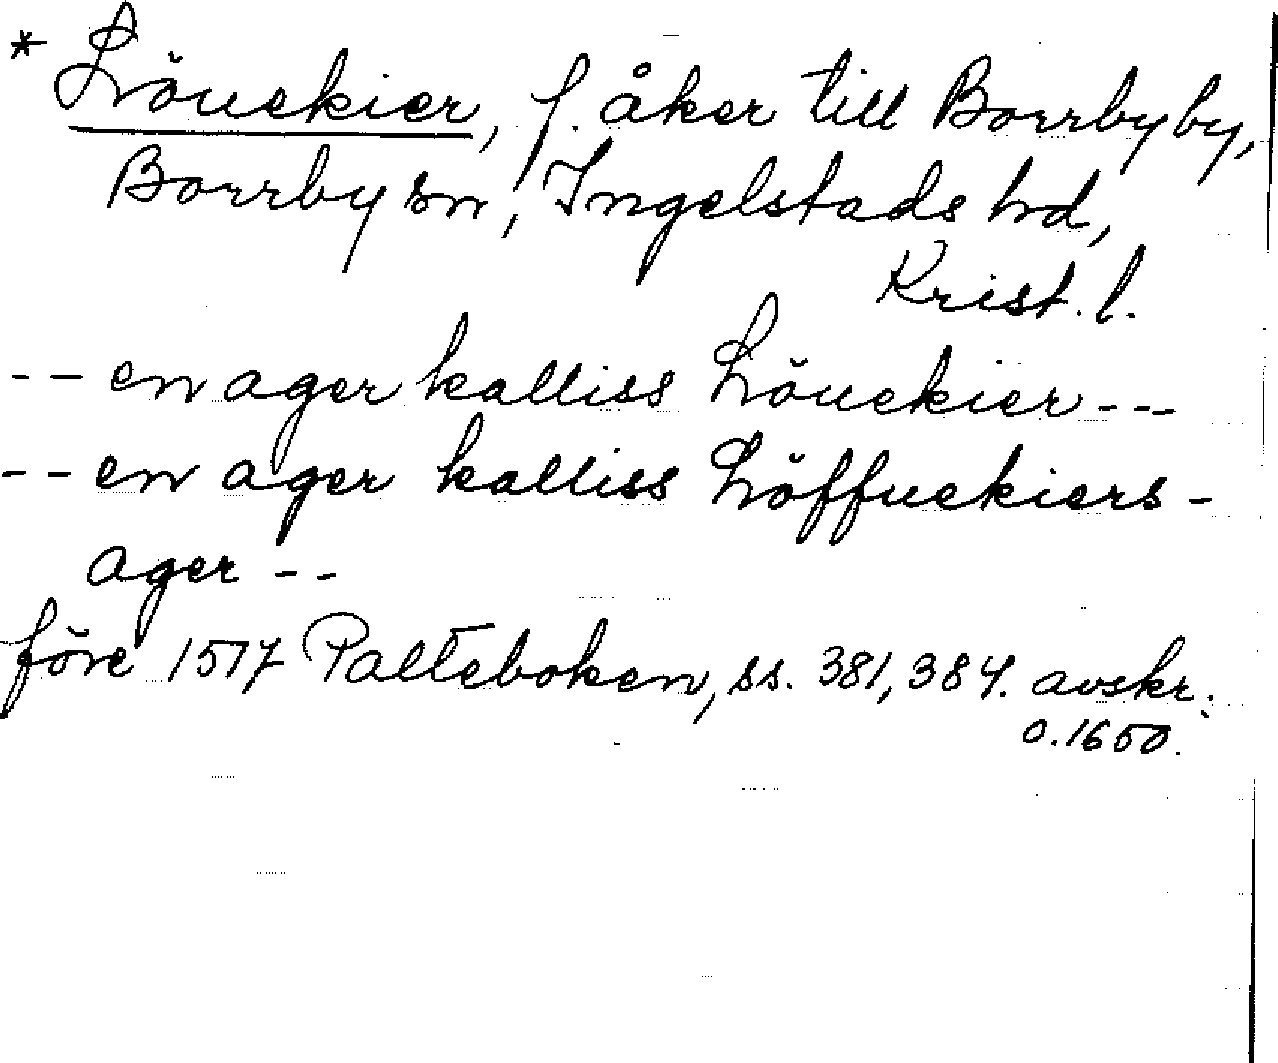 * Löuekier, f. åker till Borrby by,
Borrby sn, Ingelstads hd,
Krist. l.
-- en ager kalliss Löuekier ---
-- en ager kalliss Löffuekiers-
ager --
före 1517 Palteboken, ss. 381, 384. avskr.
o. 1650.